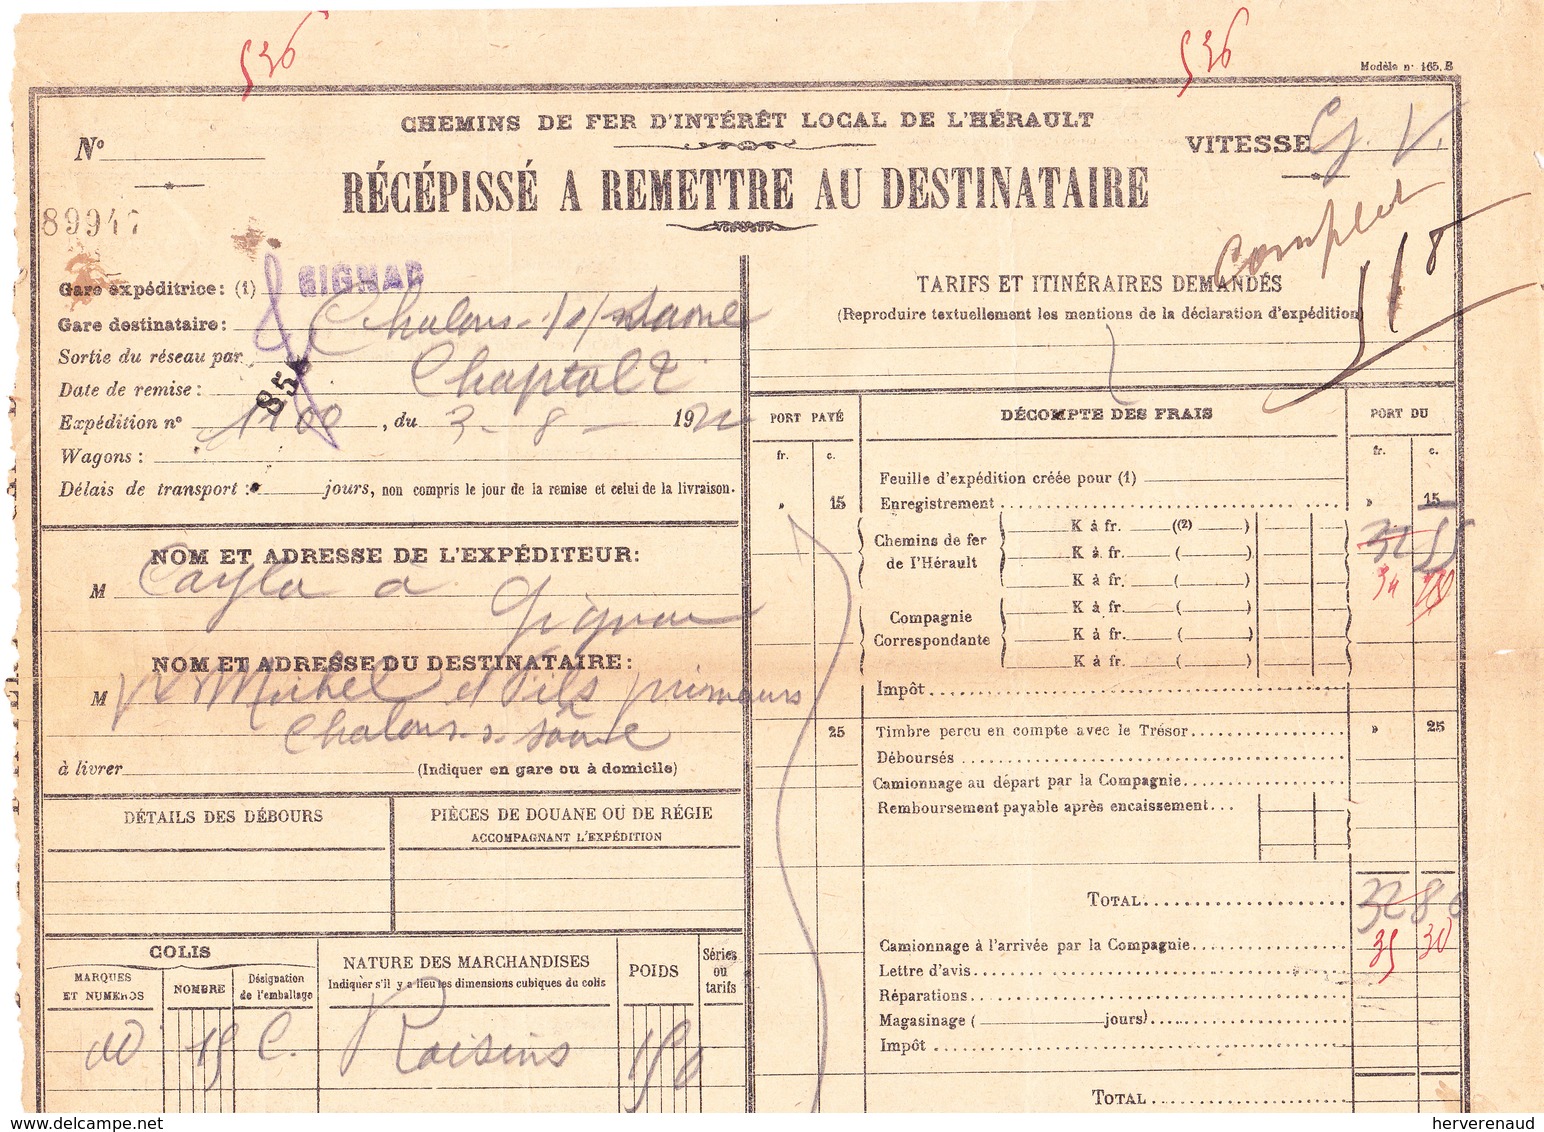 536
536
Modèle n° 165. B
CHEMINS DE FER D'INTÉRÊT LOCAL DE L'HÉRAULT
N°
VITESSE G. V.
RÉCÉPISSÉ A REMETTRE AU DESTINATAIRE
89947
Complet
518
Gare expéditrice: (1) GIGNAC
Gare destinataire: Chalons-s/saone
Sortie du réseau par Chaptal 2
Date de remise:
85
Expédition n° 1100, du 3-8-1922
Wagons:
Délais de transport: jours, non compris le jour de la remise et celui de la livraison.
TARIFS ET ITINÉRAIRES DEMANDÉS
(Reproduire textuellement les mentions de la déclaration d'expédition)
NOM ET ADRESSE DE L'EXPÉDITEUR:
M Cayla à Gignac
NOM ET ADRESSE DU DESTINATAIRE:
M Ve Michel et Fils primeurs
Chalons-s-saône
à livrer (Indiquer en gare ou à domicile)
DÉTAILS DES DÉBOURS
PIÈCES DE DOUANE OU DE RÉGIE
ACCOMPAGNANT L'EXPÉDITION
COLIS
MARQUES ET NUMÉROS
NOMBRE
Désignation de l'emballage
NATURE DES MARCHANDISES
Indiquer s'il y a lieu les dimensions cubiques du colis
POIDS
Séries ou tarifs
15 C. Raisins 150
PORT PAYÉ
DÉCOMPTE DES FRAIS
PORT DU
fr. c.
fr. c.
Feuille d'expédition créée pour (1)
» 15 Enregistrement » 15
Chemins de fer de l'Hérault
K à fr. ((2) )
K à fr. ( )
K à fr. ( )
32 55
34
Compagnie Correspondante
K à fr. ( )
K à fr. ( )
K à fr. ( )
Impôt
25 Timbre perçu en compte avec le Trésor » 25
Déboursés
Camionnage au départ par la Compagnie
Remboursement payable après encaissement
TOTAL 32 80
Camionnage à l'arrivée par la Compagnie 35 30
Lettre d'avis
Réparations
Magasinage ( jours)
Impôt
TOTAL
delcampe.net
herverenaud